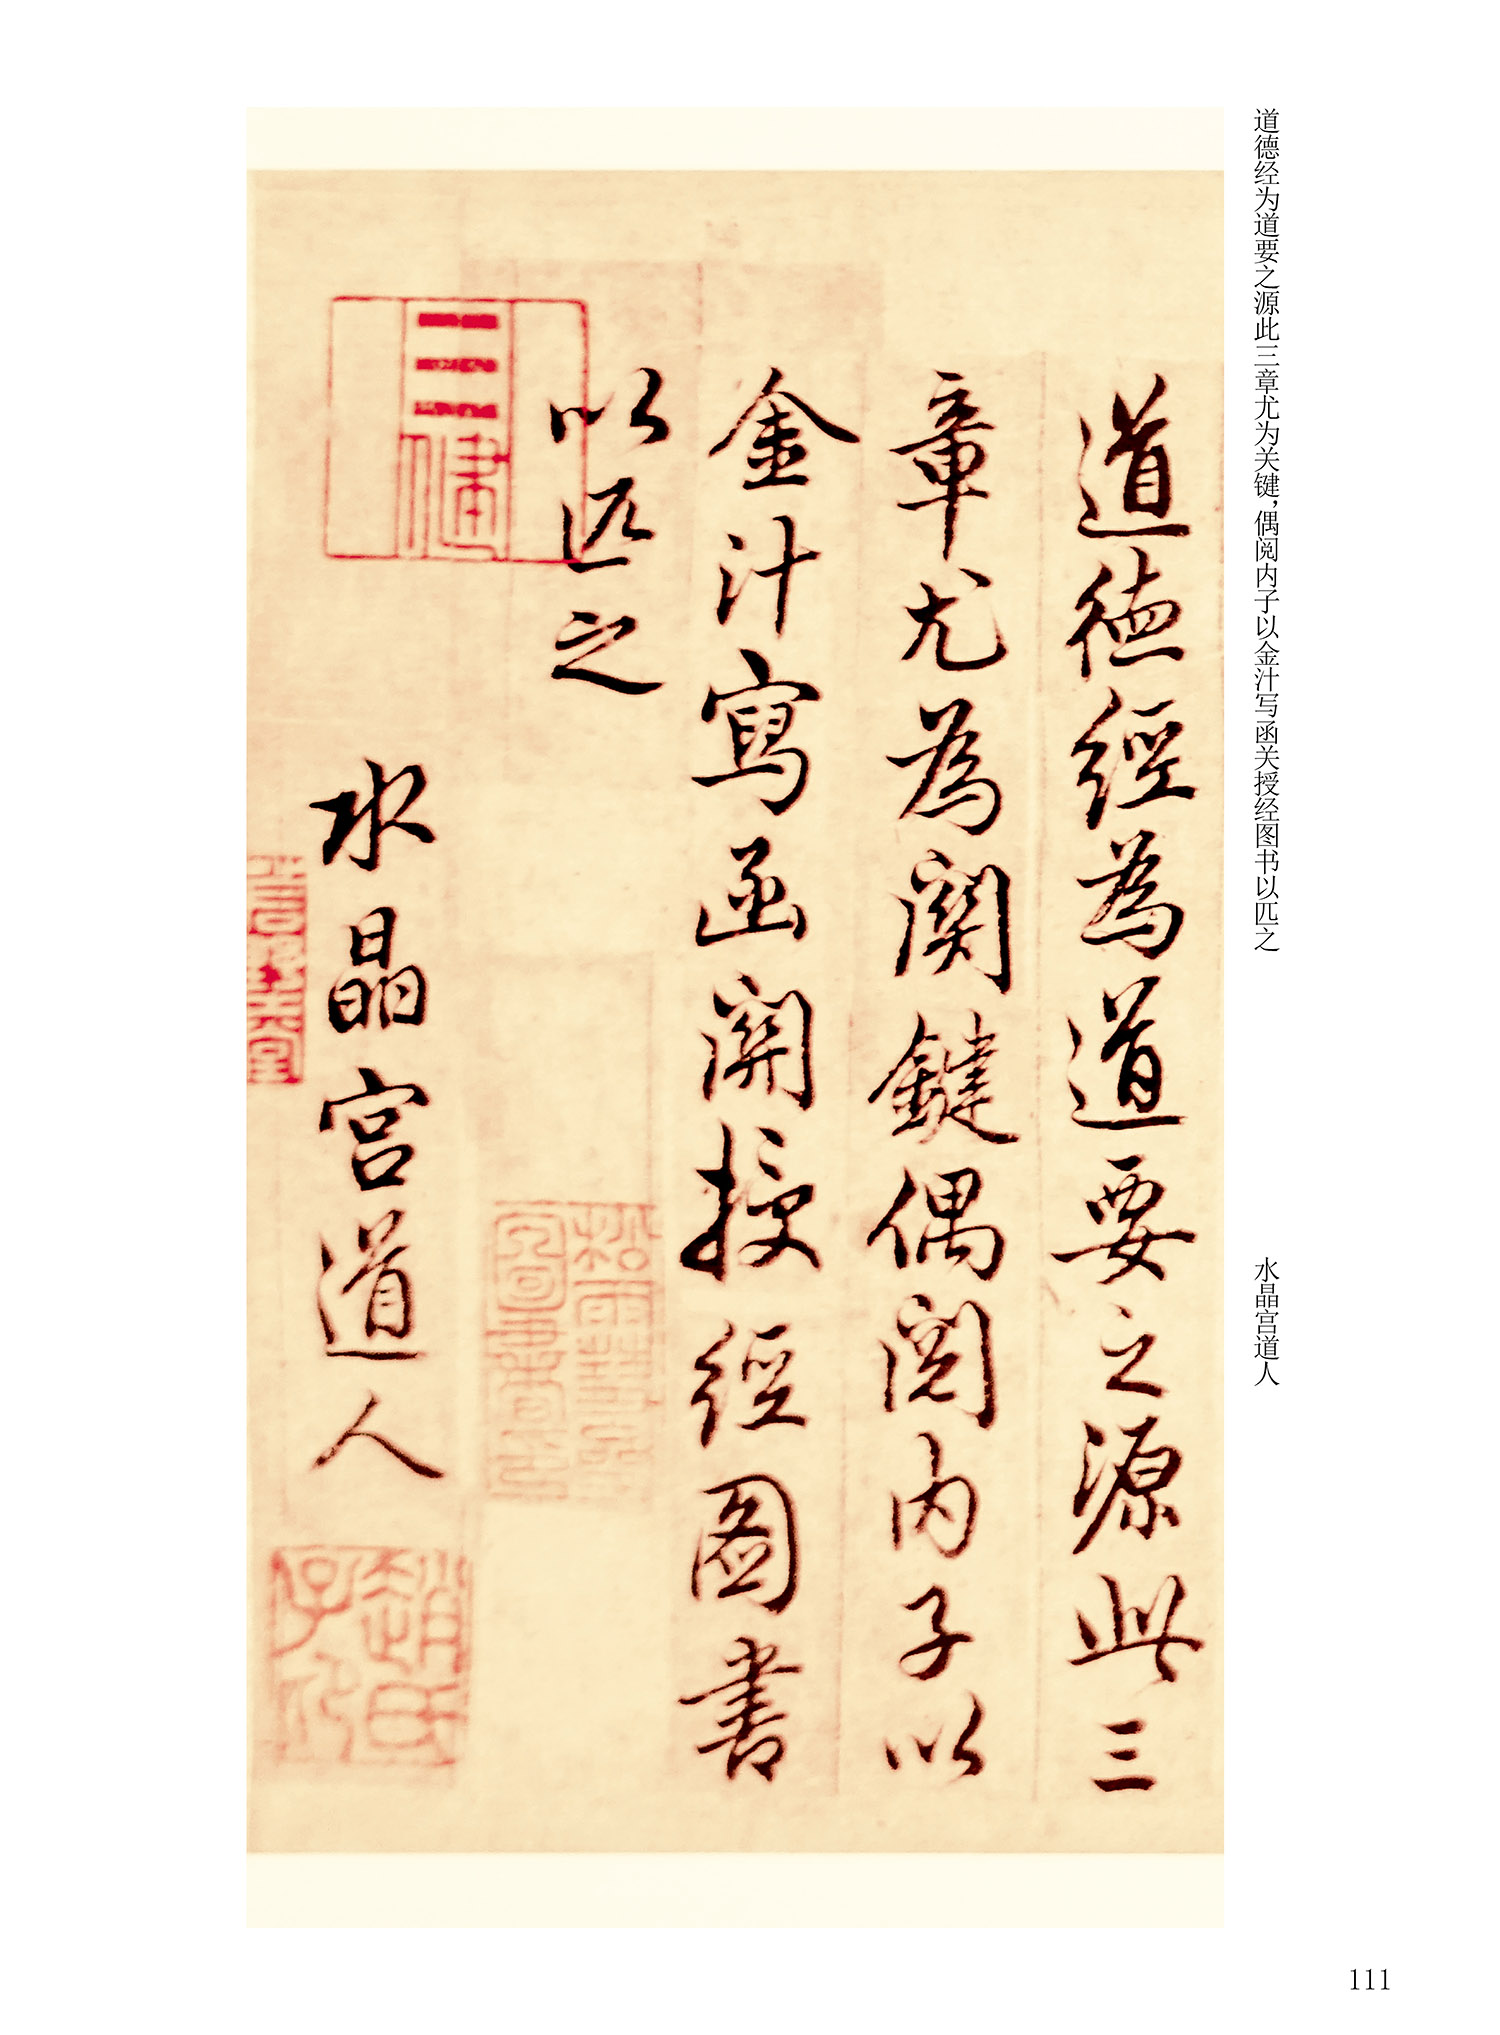 道德经为道要之源此三章尤为关键，偶阅内子以金汁写函关授经图书以匹之
水晶宫道人
道德經為道要之源此三
章尤為関鍵偶閱内子以
金汁寫函關授經圖書
以匹之
水晶宫道人
趙氏子卬
111